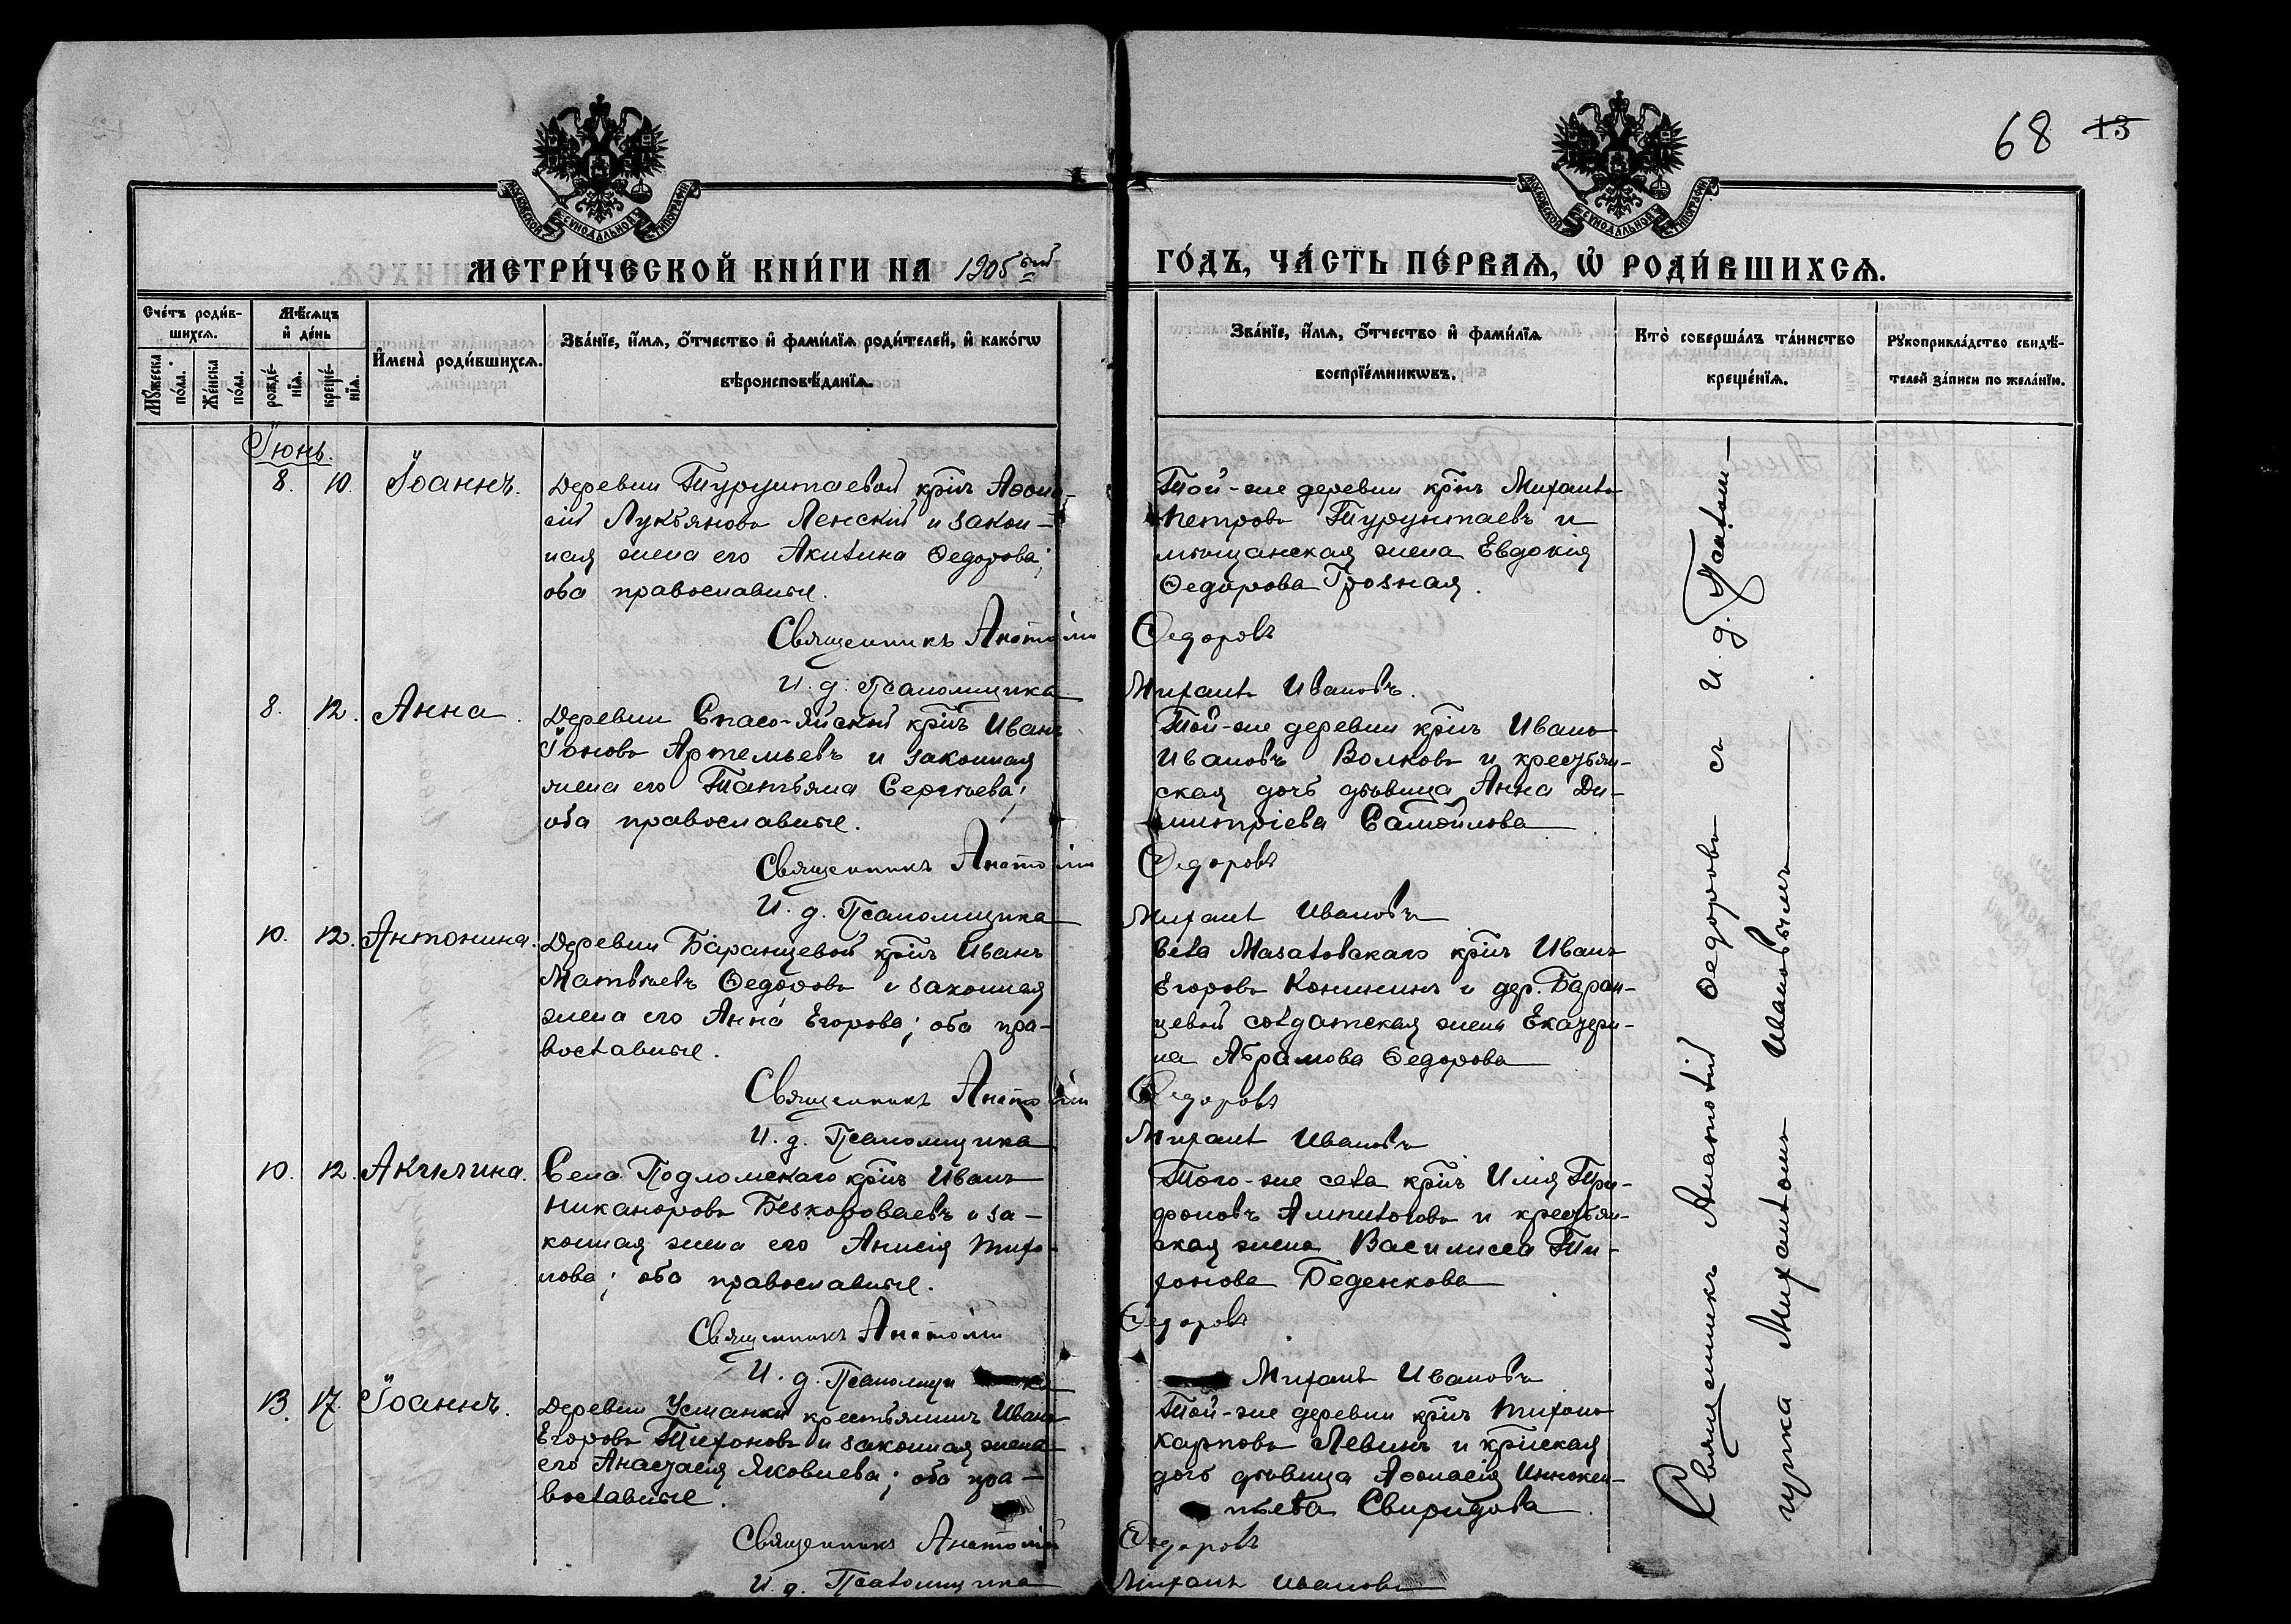 68 13
МОСКОВСКОЙ СѴНОДАЛЬНОЙ ТИПОГРАФІИ
МОСКОВСКОЙ СѴНОДАЛЬНОЙ ТИПОГРАФІИ
МЕТРИ́ЧЕСКОЙ КНИ́ГИ НА 1905 ый
ГО́ДЪ, ЧА́СТЬ ПЕ́РВАѦ, Ѽ РОДИ́ВШИХСѦ.
Сче́тъ роди́в-
шихсѧ.
Мꙋ́жеска
по́ла.
Же́нска
по́ла.
Мѣ́сѧцъ
и҆ де́нь
рожде́-
нїѧ.
креще́-
нїѧ.
И҆мена̀ роди́вшихсѧ.
Зва́нїе, и҆́мѧ, ѻ҆́тчество и҆ фами́лїѧ роди́телей, и҆ како́гѡ
вѣроисповѣ́данїѧ.
Зва́нїе, и҆́мѧ, ѻ҆́тчество и҆ фами́лїѧ
воспрїе́мникѡвъ.
Кто̀ соверша́лъ та́инство
креще́нїѧ.
Рꙋкоприкла́дство свидѣ́-
телей за́писи по жела́нїю.
Іюнь.
8. 10. Іоаннъ.
Деревни Турунтаевой крнъ Афона-
сій Лукьяновъ Ленскій и закон-
ная жена его Акилина Ѳедорова;
оба православные.
Той-же деревни крнъ Михаилъ
Петровъ Турунтаевъ и
мѣщанская жена Евдокія
Ѳедорова Грозная.
Священникъ Анатолій Ѳедоровъ
И. д. Псаломщика Михаилъ Ивановъ.
8. 12. Анна.
Деревни Спасо-Яйской крнъ Иванъ
Іоновъ Артемьевъ и законная
жена его Татьяна Сергѣева;
оба православные.
Той-же деревни крнъ Иванъ
Ивановъ Волковъ и крестьян-
ская дочь дѣвица Анна Ди-
митріева Самойлова
Священникъ Анатолій Ѳедоровъ
И. д. Псаломщика Михаилъ Ивановъ
10. 12. Антонина.
Деревни Баранцевой крнъ Иванъ
Матвѣевъ Ѳедоровъ и законная
жена его Анна Егорова; оба пра-
вославные.
Села Мазаловскаго крнъ Иванъ
Егоровъ Конинъ и дер. Баран-
цевой солдатская жена Екатери-
на Абрамова Ѳедорова
Священникъ Анатолій Ѳедоровъ
И. д. Псаломщика Михаилъ Ивановъ
10. 12. Акилина.
Села Подломскаго крнъ Иванъ
Никаноровъ Безкороваевъ и за-
конная жена его Анисія Тихо-
нова; оба православные.
Того-же села крнъ Илія Три-
фоновъ Ампилоговъ и крестьян-
ская жена Василисса Ти-
хонова Беденкова
Священникъ Анатолій Ѳедоровъ
И. д. Псаломщика Михаилъ Ивановъ
13. 17. Іоаннъ.
Деревни Усманки крестьянинъ Иванъ
Егоровъ Тихоновъ и законная жена
его Анастасія Яковлева; оба пра-
вославные.
Той-же деревни крнъ Тихонъ
Карповъ Левинъ и крнская
дочь дѣвица Афонасія Иннокен-
тьева Свиридова.
Священникъ Анатолій Ѳедоровъ
И. д. Псаломщика Михаилъ Ивановъ
Священникъ Анатолій Ѳедоровъ съ И. д. Псалом-
щика Михаиломъ Ивановымъ